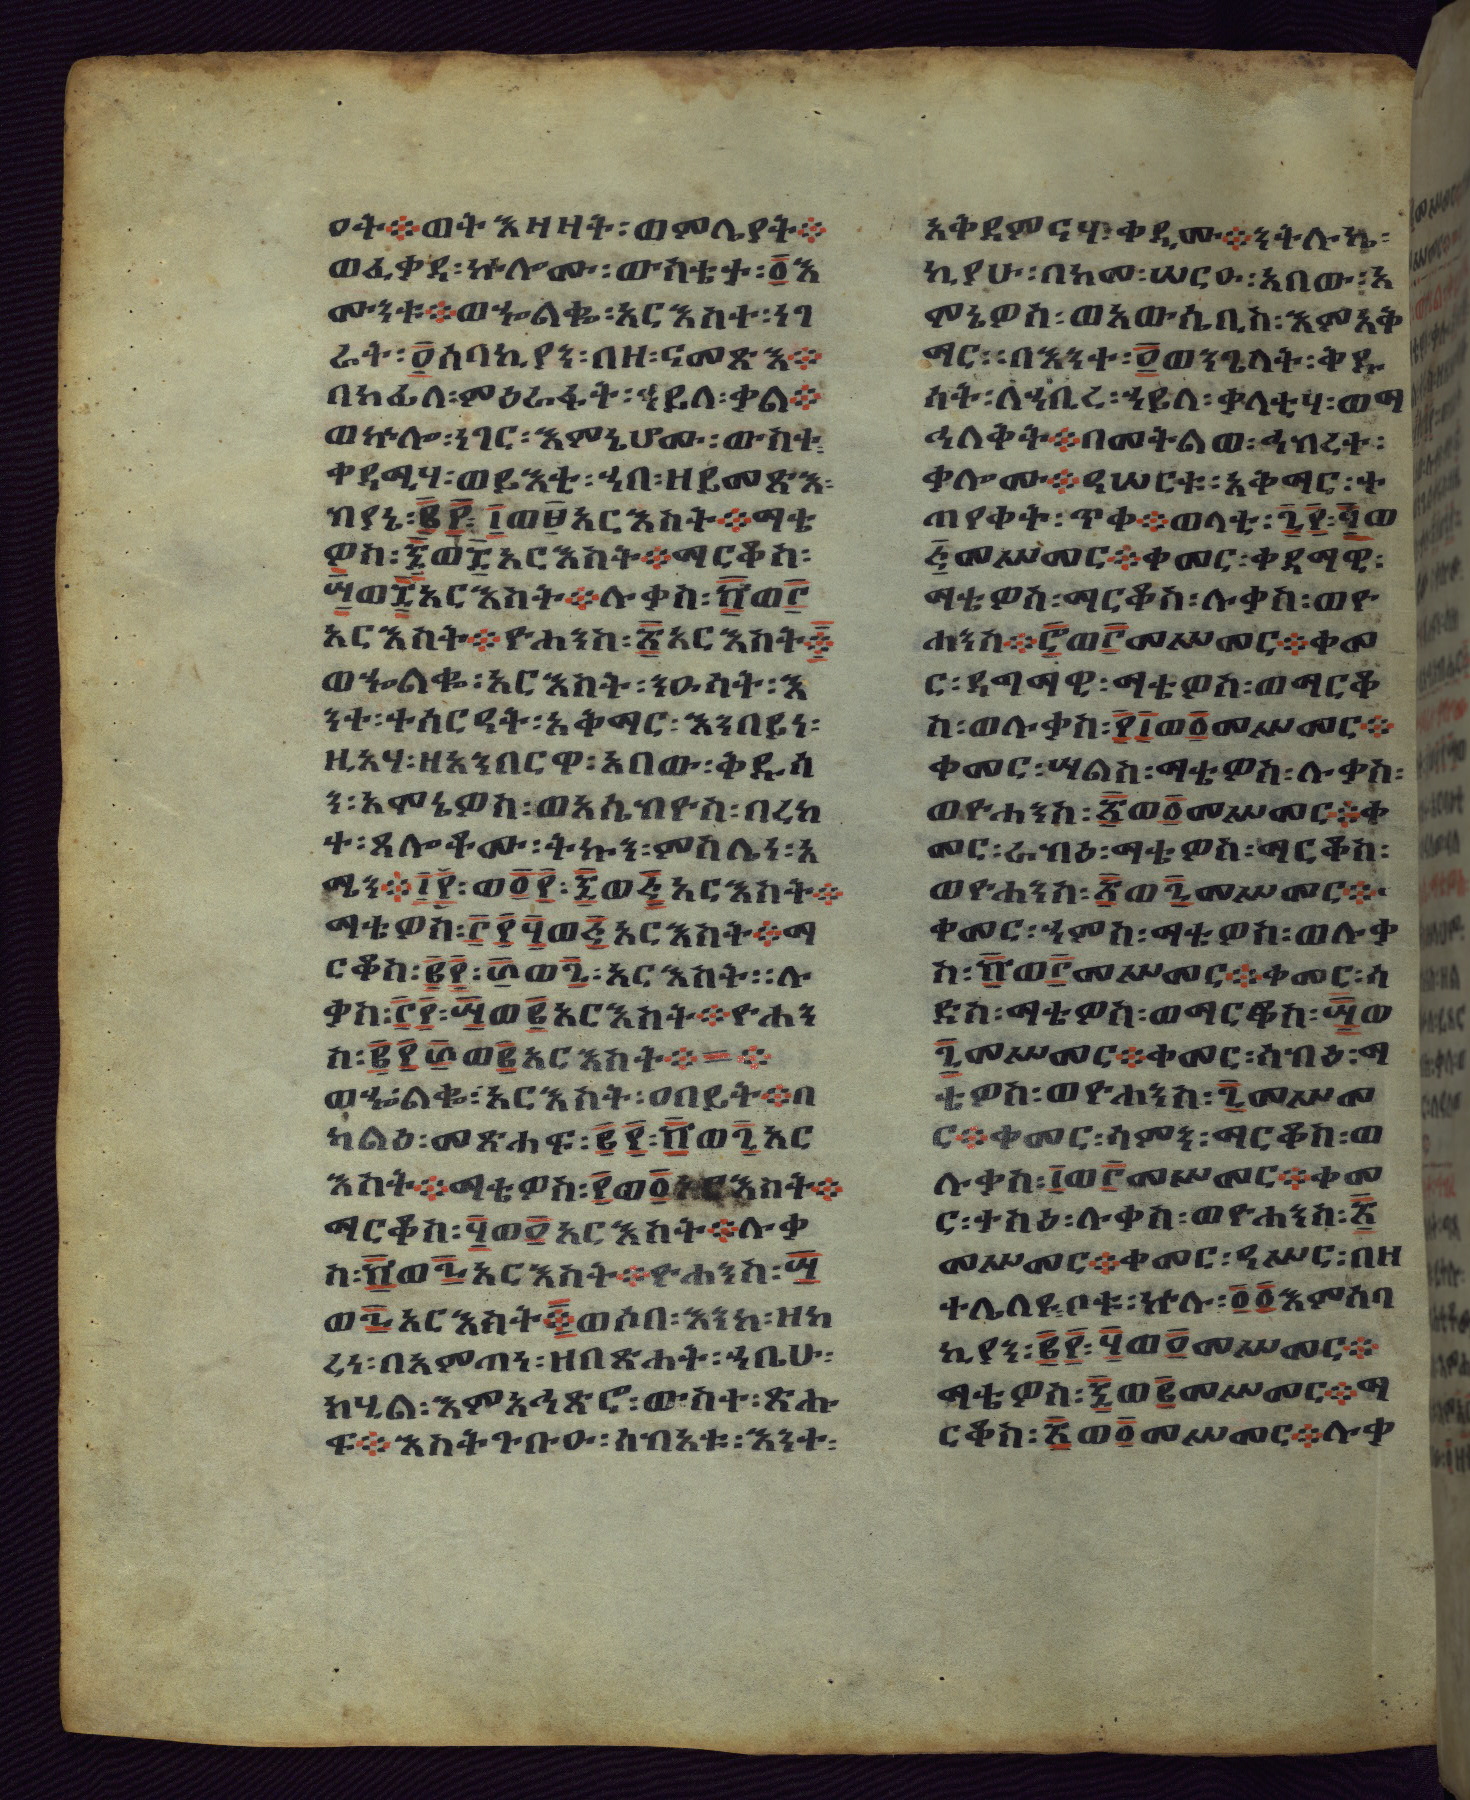 ዐት፨ወትእዛዛት፡ወምሌያት፨
ወፈቃደ፡ኵሎሙ፡ውስቴተ፡፬እ
ሙንቱ፨ወኍልቈ፡አርእስተ፡ነገ
ራት፡፬ስባኪያን፡በዘ፡ናመጽእ፨
በከፊለ፡ምዕራፋት፡ኀይለ፡ቃል፨
ወኵሎ፡ነገር፡እምኔሆሙ፡ውስተ፡
ቀዳሚሃ፡ወይእቲ፡ኀበ፡ዘይመጽእ፡
ብያኔ፡፪፻፡፲ወ፰አርእስት፨ማቴ
ዎስ፡፷ወ፰አርእስት፨ማርቆስ፡
፵ወ፰አርእስት፨ሉቃስ፡፹ወ፫
አርእስት፨ዮሐንስ፡፳አርእስት፨
ወኍልቈ፡አርእስት፡ንዑሳት፡እ
ንተ፡ተስርዳት፡አቅማር፡እንበይነ፡
ዚአሃ፡ዘአንበርዋ፡አበው፡ቅዱሳ
ን፡አሞኔዎስ፡ወአሲብዮስ፡በረከ
ተ፡ጸሎቶሙ፡ትኩን፡ምስሌነ፡አ
ሜን፨፲፻፡ወ፩፻፡፷ወ፯አርእስት፨
ማቴዎስ፡፫፻፶ወ፯አርእስት፨ማ
ርቆስ፡፪፻፡፴ወ፮፡አርእስት፡፡ሉ
ቃስ፡፫፻፡፵ወ፪አርእስት፨ዮሐን
ስ፡፪፻፴ወ፪አርእስት፨=፨
ወኍልቈ፡አርእስት፡ዐበይት፨በ
ካልዕ፡መጽሐፍ፡፪፻፡፹ወ፮አር
እስት፨ማቴዎስ፡፻ወ፩አርእስት፨
ማርቆስ፡፶ወ፬አርእስት፨ሉቃ
ስ፡፹ወ፮አርእስት፨ዮሐንስ፡፵
ወ፮አርእስት፨ወሶበ፡እንከ፡ዘከ
ረነ፡በአምጣነ፡ዘበጽሐት፡ኀቤሁ፡
ክሂል፡እምአኃጽሮ፡ውስተ፡ጽሑ
ፍ፨እስትጉቡዑ፡ስብአቱ፡እንተ፡
አቅደምናሃ፡ቀዲሙ፨ንትሉኬ፡
ኪያሁ፡በከመ፡ሠርዑ፡አበው፡አ
ምኔዎስ፡ወአውሲቢስ፡እምአቅ
ማር፡፡በእንተ፡፬ወንጌላት፡ቅዱ
ሳት፡ለኀቢረ፡ኀይለ፡ቃላቲሃ፡ወማ
ኅለቅት፨በመትልወ፡ኃብረት፡
ቃሎሙ፨ዲሠርቱ፡አቅማር፡ተ
ጠየቀት፡ጥቀ፨ወላቲ፡፮፻፡፶ወ
፯መሥመር፨ቀመር፡ቀዳማዊ፡
ማቴዎስ፡ማርቆስ፡ሉቃስ፡ወዮ
ሐንስ፨፸ወ፫መሥመር፨ቀመ
ር፡ዳግማዊ፡ማቴዎስ፡ወማርቆ
ስ፡ወሉቃስ፡፻፲ወ፩መሥመር፨
ቀመር፡ሣልስ፡ማቴዎስ፡ሉቃስ፡
ወዮሐንስ፡፳ወ፩መሥመር፨ቀ
መር፡ራብዕ፡ማቴዎስ፡ማርቆስ፡
ወዮሐንስ፡፳ወ፮መሥመር፨
ቀመር፡ኀምስ፡ማቴዎስ፡ወሉቃ
ስ፡፹ወ፫መሥመር፨ቀመር፡ሳ
ድስ፡ማቴዎስ፡ወማርቆስ፡፵ወ
፮መሥመር፨ቀመር፡ሳብዕ፡ማ
ቴዎስ፡ወዮሐንስ፡፮መሥመ
ር፨ቀመር፡ሳምን፡ማርቆስ፡ወ
ሉቃስ፡፲ወ፫መሥመር፨ቀመ
ር፡ታስዕ፡ሉቃስ፡ወዮሐንስ፡፳
መሥመር፨ቀመር፡ዓሥር፡በዘ
ተሌለይ፡ቦቱ፡ኵሉ፡፩፩እምስባ
ኪያን፡፪፻፡፶ወ፬መሥመር፨
ማቴዎስ፡፷ወ፪መሥመር፨ማ
ርቆስ፡፳ወ፩መሥመር፨ሉቃ